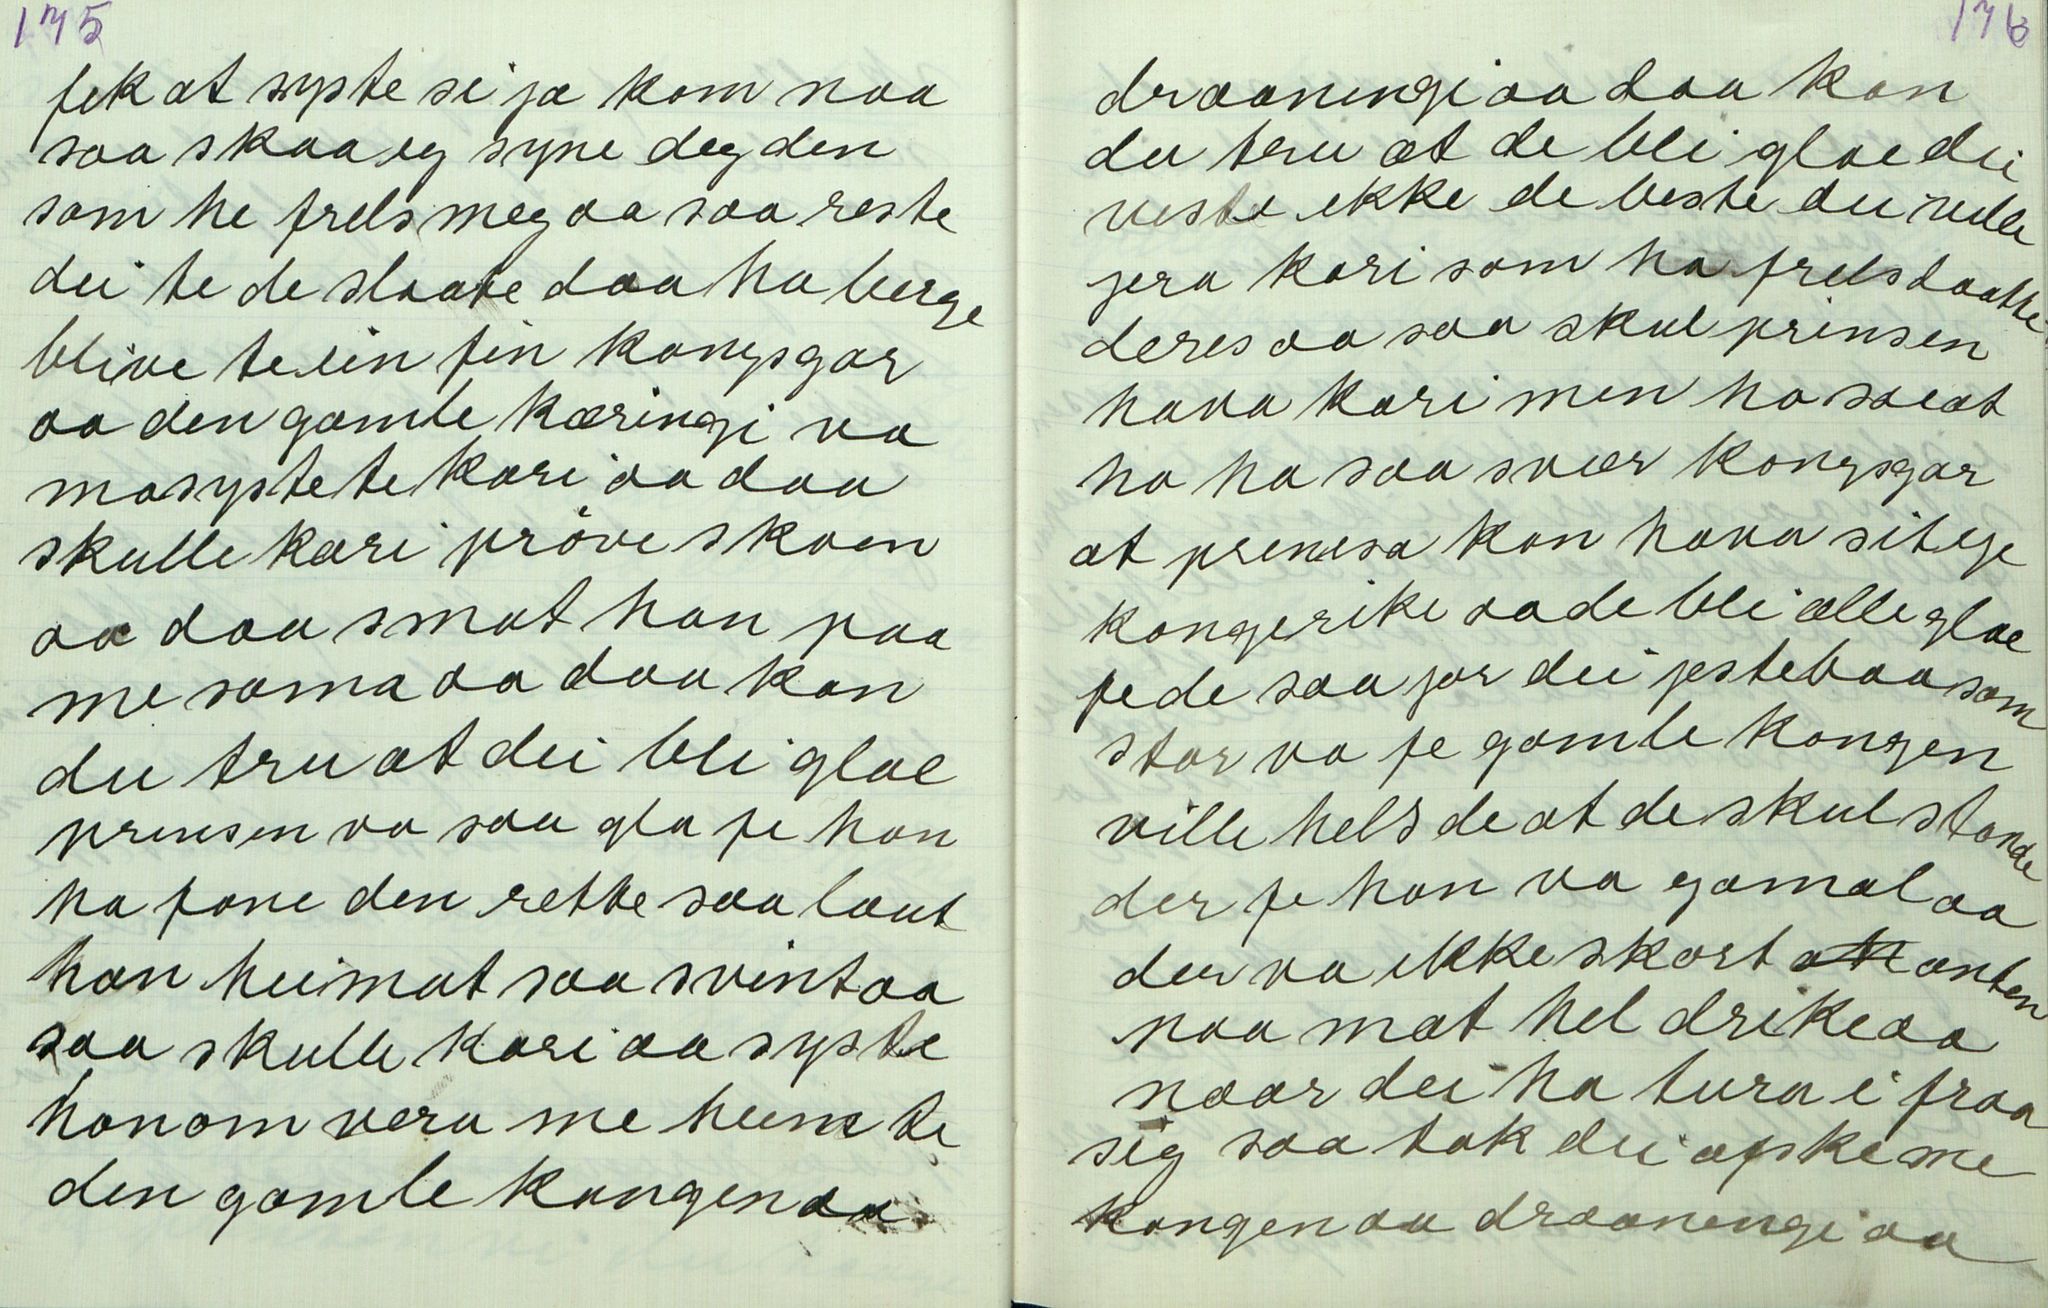 175
fek at syste si ja kom naa
saa skaa eg syne deg den
som he frels meg aa saa reste
dei te de slaate daa ha berge
blive te ein fin kongsgar
aa den gamle kæringi va
mosyste te kari aa daa
skulle kari pröve skoen
aa daa smat han paa
me sama aa daa kan
du tru at dei blei glae
prinsen va saa gla fe han
ha fone den rette saa laut
han heimat saa svint aa
saa skulle kari aa syste
hanom vera me heim te
den gamle kongen aa
176
draaningi aa daa kan
du tru at de blei glae dei
viste ikke de beste dei ville
jera kari som ha frels daatte
deres aa saa skul prinsen
hava kari men ho sa at
ho ha saa svær kongsgar
at prinsen kan hava sit eje
kongerike aa de blei alle glae
fe de saa jor dei jestebaa som
stor va fe gamle kongen
ville hels de at de skul stande
der fe han va gamal aa
der va ikke skort anten
paa mat hel drike aa
naar dei ha tura i fraa
sig saa tok dei afske me
kongen aa draaningi aa